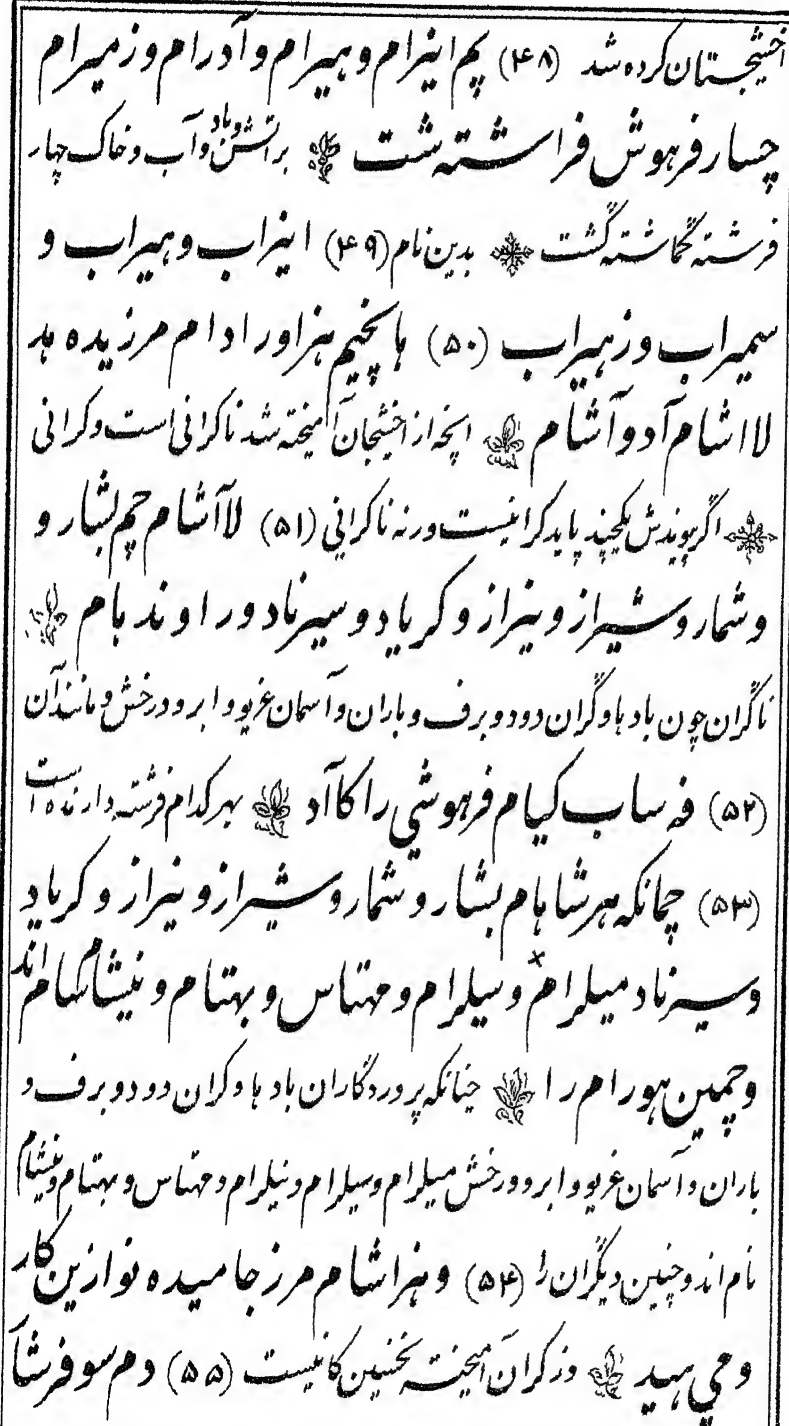 اخشیجستان کرده شد (۴۸) پم اینرام و هیرام و آدرام و زمیرام
چسار فرهوش فراشته شت براتش و باد و آب و خاک چهار
فرشته گماشته گشت بدین نام (۴۹) اینراب و هیراب و
سمیراب و زهیراب (۵۰) هاپخیم هزاور ادام مرزیده هد
لااشام آد و آشام انچه از اخشیجان آمیخته شد ناکرانی است و کرانی
اگر پیوندش یکچند پاید کرانیست ورنه ناکرانی (۵۱) لاآشام چم بشار و
وشمار و شیراز و نیراز و کریاد و سیرناد و راوند بام
ناگران چون باد باوگران دود و برف و باران و آسمان غریو و ابر و درخش و مانند آن
(۵۲) فه ساب کیام فرهوشی را کاآد بهر کدام فرشته دارنده است
(۵۳) چمانکه هرشاهام بشار و شمار و شیراز و نیراز و کریاد
و سیرناد میلرام و سیلرام و مهتاس و بهتام و نیشام سام اند
و چمین هورام را چنانکه پروردگاران باد باوکران دود و برف و
باران و آسمان غریو و ابر و درخش میلرام و سیلرام و نیلرام و مهتاس و بهتام و نیشام
نام اند و چنین دیگران را (۵۴) و هنراشام مرزجامیده نوازین کار
و می هید وز کران آمیخته نخستین کانیست (۵۵) دم سو فرشا